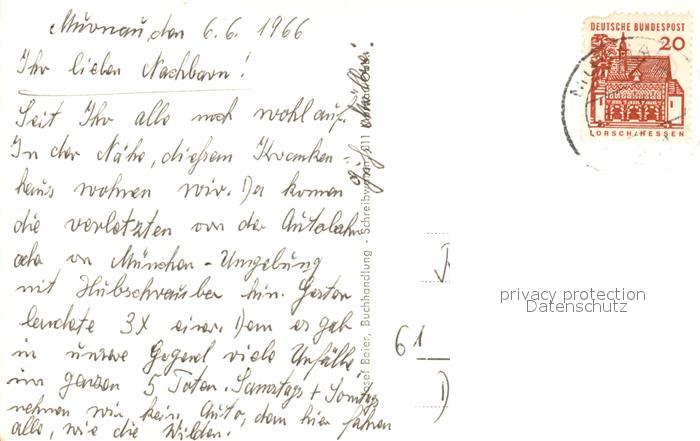 Murnau, den 6.6.1966
Ihr lieben Nachbarn!
Seit Ihr alle noch wohlauf.
In der Nähe, diesem Kranken
haus wohnen wir. Da komen
die verletzten von der Autobahn
oder von München - Umgebung
mit Hubschrauber hin. Gestern
landete 3x einer. Denn es gab
in unsere Gegend viele Unfälle
im ganzen 5 Toten. Samstags + Sonntag
nehmen wir kein Auto, denn hier fahren
alle, wie die Wilden.
Josef Beier, Buchhandlung - Schreibwaren, 811
61
DEUTSCHE BUNDESPOST
20
LORSCH/HESSEN
privacy protection
Datenschutz